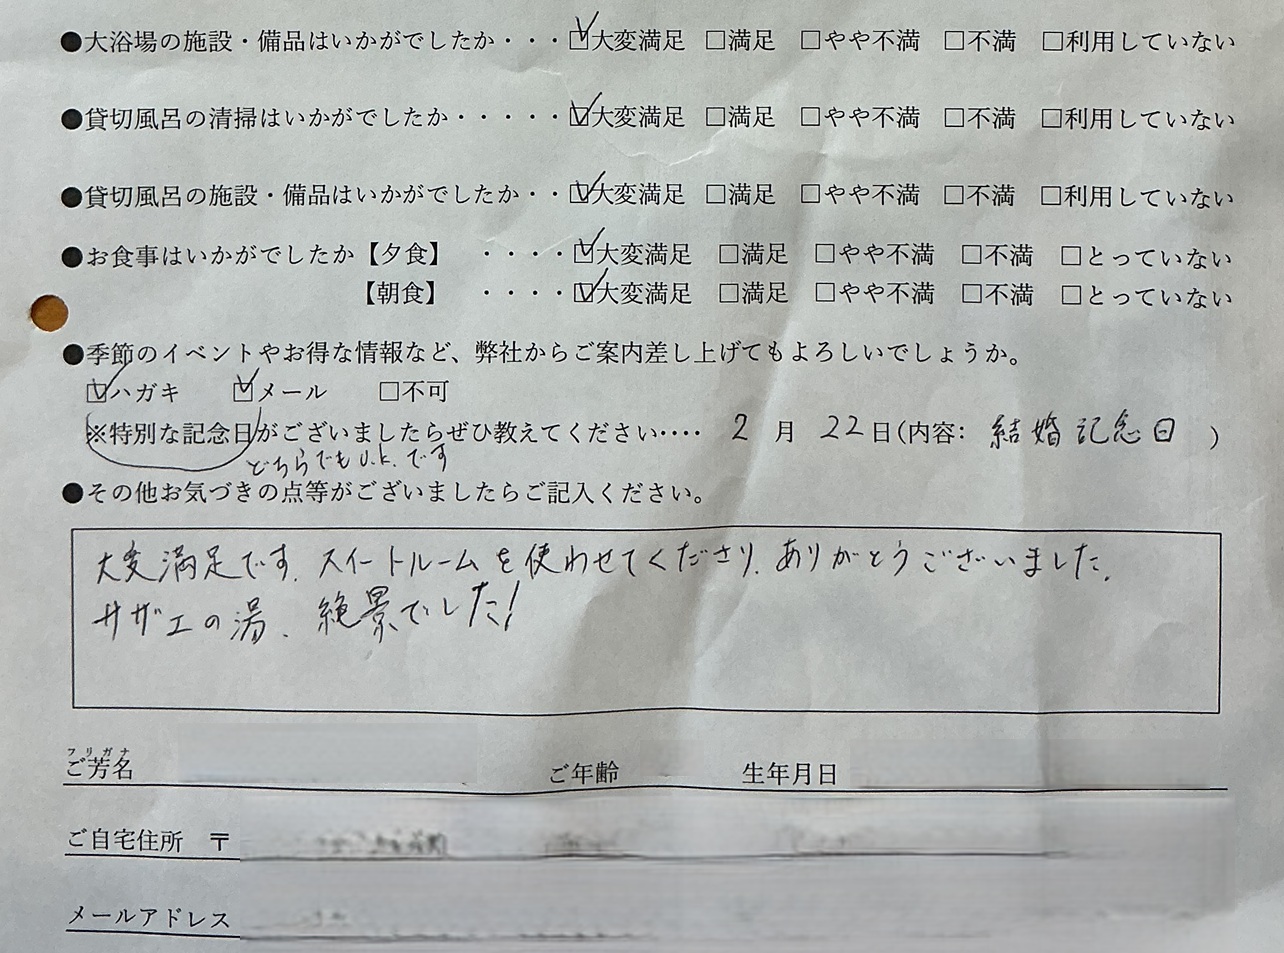 ●大浴場の施設・備品はいかがでしたか・・・☑大変満足 □満足 □やや不満 □不満 □利用していない
●貸切風呂の清掃はいかがでしたか・・・・・☑大変満足 □満足 □やや不満 □不満 □利用していない
●貸切風呂の施設・備品はいかがでしたか・・☑大変満足 □満足 □やや不満 □不満 □利用していない
●お食事はいかがでしたか【夕食】 ・・・・☑大変満足 □満足 □やや不満 □不満 □とっていない
【朝食】 ・・・・☑大変満足 □満足 □やや不満 □不満 □とっていない
●季節のイベントやお得な情報など、弊社からご案内差し上げてもよろしいでしょうか。
☑ハガキ ☑メール □不可
※特別な記念日がございましたらぜひ教えてください‥‥ 2月 22日(内容: 結婚記念日 )
どちらでもO.K.です
●その他お気づきの点等がございましたらご記入ください。
大変満足です。スイートルームを使わせてくださり、ありがとうございました。
サザエの湯、絶景でした!
フリガナ
ご芳名 ご年齢 生年月日
ご自宅住所 〒
メールアドレス